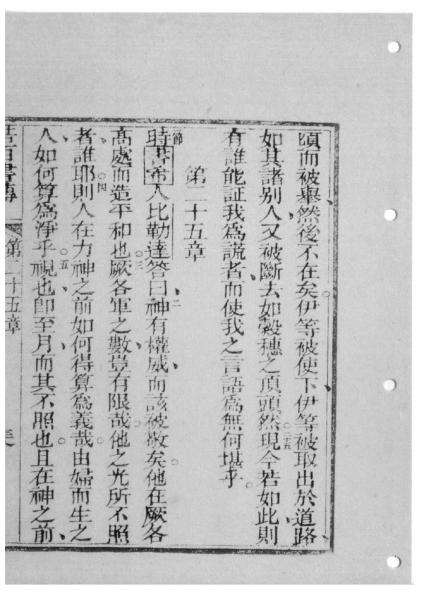 頃而被舉然後不在矣伊等被使下伊等被取出於道路
如其諸別人又被斷去如穀穗之頂頭然二十五現今若如此則
有誰能証我為謊者而使我之言語為無何堪乎
第二十五章
節時書希人比勒達答曰二神有權威而該被敬矣他在厥各
高處而造平和也三厥各軍之數豈有限哉他之光所不照
者誰耶四則人在力神之前如何得算為義哉由婦而生之
人如何算為淨乎五視也卽至月而其不照也且在神之前
書傳 第二十五章